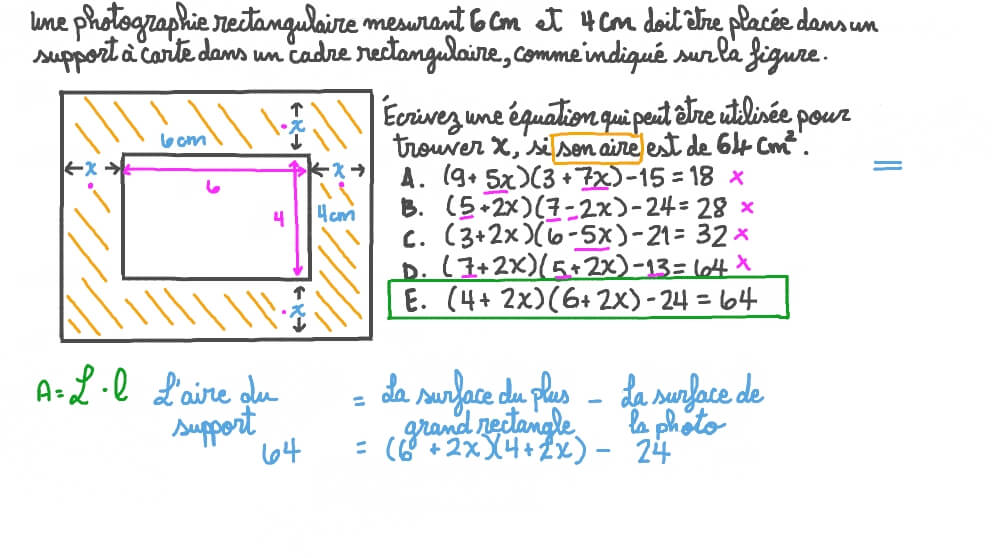 Une photographie rectangulaire mesurant 6 cm et 4 cm doit être placée dans un
support à carte dans un cadre rectangulaire, comme indiqué sur la figure.
x
6cm
x
x
6
4
4cm
x
Écrivez une équation qui peut être utilisée pour
trouver x, si son aire est de 64 cm².
=
A. (9+ 5x)(3 + 7x)-15 = 18 x
B. (5 +2x)(7-2x)-24= 28 x
C. (3+2x)(6-5x)-21= 32 x
D. (7+2x)(5+2x)-13=64 x
E. (4+ 2x)(6+2x)-24 = 64
A= L · l
L'aire du = La surface du plus - La surface de
support grand rectangle la photo
64 = (6 +2x)(4+2x) - 24